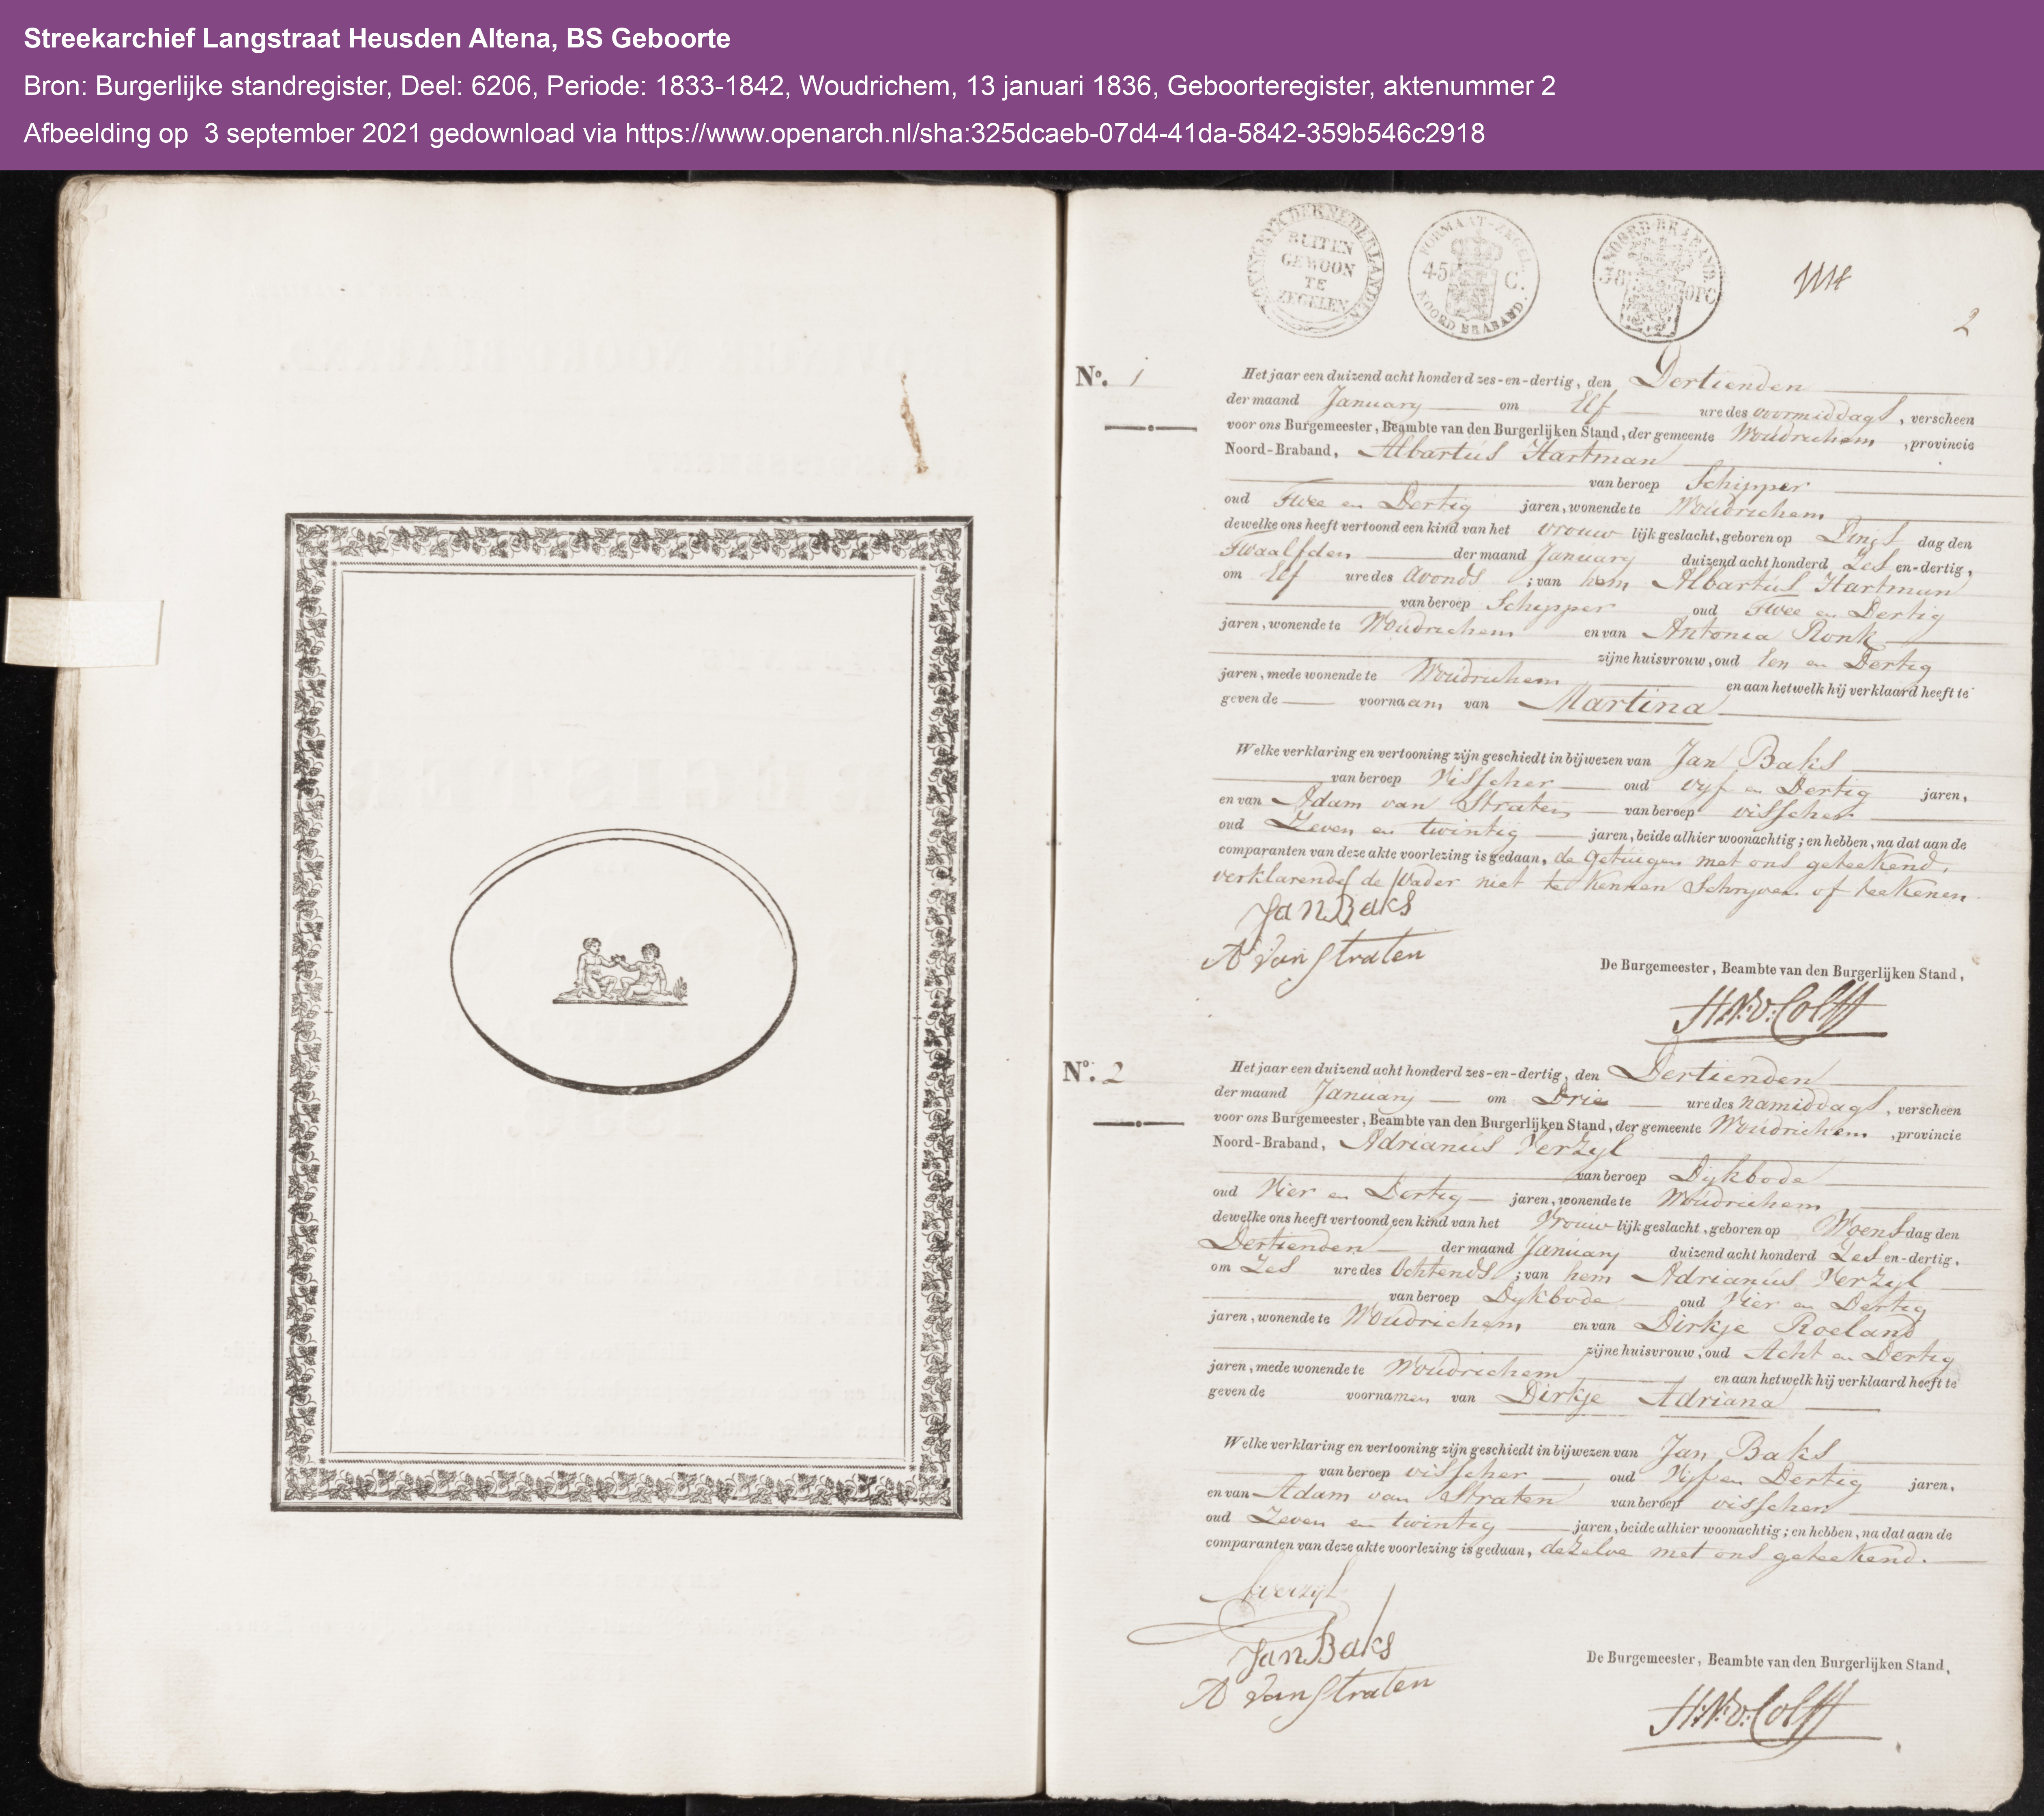 Streekarchief Langstraat Heusden Altena, BS Geboorte
Bron: Burgerlijke standregister, Deel: 6206, Periode: 1833-1842, Woudrichem, 13 januari 1836, Geboorteregister, aktenummer 2
Afbeelding op 3 september 2021 gedownload via https://www.openarch.nl/sha:325dcaeb-07d4-41da-5842-359b546c2918
KONINGRYK DER NEDERLANDEN
BUITEN
GEWOON
TE
ZEGELEN
FORMAAT-ZEGEL
45 C.
NOORD BRABAND.
NOORD-BRABAND.
38 OPC
2
No. 1
Het jaar een duizend acht honderd zes-en-dertig, den Dertienden
der maand January om Elf ure des voormiddags, verscheen
voor ons Burgemeester, Beambte van den Burgerlijken Stand, der gemeente Woudrichem, provincie
Noord-Braband, Albartus Hartman
van beroep Schipper
oud Twee en Dertig jaren, wonende te Woudrichem
dewelke ons heeft vertoond een kind van het vrouw lijk geslacht, geboren op Dings dag den
Twaalfden der maand January duizend acht honderd Zes en-dertig,
om Elf ure des Avonds ; van hem Albartus Hartman
van beroep Schipper oud Twee en Dertig
jaren, wonende te Woudrichem en van Antonia Ronk
zijne huisvrouw, oud Een en Dertig
jaren, mede wonende te Woudrichem en aan hetwelk hij verklaard heeft te
geven de voornaam van Martina
Welke verklaring en vertooning zijn geschiedt in bijwezen van Jan Baks
van beroep Visscher oud vyf en Dertig jaren,
en van Adam van Straten van beroep visscher
oud Zeven en twintig jaren, beide alhier woonachtig; en hebben, na dat aan de
comparanten van deze akte voorlezing is gedaan, de getuigen met ons geteekend,
verklarende de Vader niet te kennen Schryven of teekenen
Jan Baks
A van Straten
De Burgemeester, Beambte van den Burgerlijken Stand,
H.N.v: Colff
No. 2
Het jaar een duizend acht honderd zes-en-dertig, den Dertienden
der maand January om Drie ure des namiddags, verscheen
voor ons Burgemeester, Beambte van den Burgerlijken Stand, der gemeente Woudrichem, provincie
Noord-Braband, Adrianus Verzyl
van beroep Dykbode
oud Vier en Dertig jaren, wonende te Woudrichem
dewelke ons heeft vertoond een kind van het Vrouw lijk geslacht, geboren op Woens dag den
Dertienden der maand January duizend acht honderd Zes en-dertig,
om Zes ure des Ochtends ; van hem Adrianus Verzyl
van beroep Dykbode oud Vier en Dertig
jaren, wonende te Woudrichem en van Dirkje Roeland
zijne huisvrouw, oud Acht en Dertig
jaren, mede wonende te Woudrichem en aan hetwelk hij verklaard heeft te
geven de voornamen van Dirkje Adriana
Welke verklaring en vertooning zijn geschiedt in bijwezen van Jan Baks
van beroep visscher oud Vijf en Dertig jaren,
en van Adam van Straten van beroep visscher
oud Zeven en twintig jaren, beide alhier woonachtig; en hebben, na dat aan de
comparanten van deze akte voorlezing is gedaan, dezelve met ons geteekend.
AVerzijl
Jan Baks
A van Straten
De Burgemeester, Beambte van den Burgerlijken Stand,
H:N:v: Colff